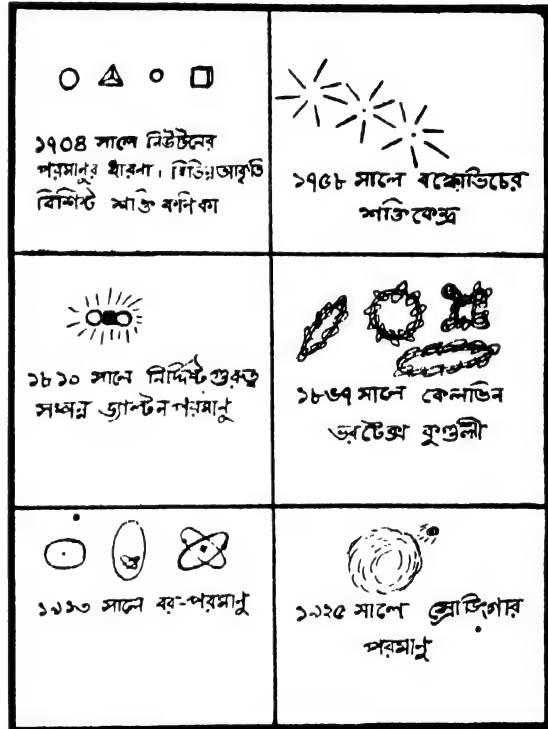 ১৭০৪ সালে নিউটনের
পরমানুর ধারনা। বিভিন্ন আকৃতি
বিশিস্ট শক্তি কনিকা
১৭৫৮ সালে বস্কোভিচের
শক্তি কেন্দ্র
১৮১০ সালে নির্দ্দিষ্ট গুরুত্ব
সম্পন্ন ড্যাল্টন পরমানু
১৮৬৭ সালে কেলভিন
ভরটেক্স কুণ্ডলী
১৯১৩ সালে বর-পরমানু
১৯২৫ সালে স্রোডিংগার
পরমানু